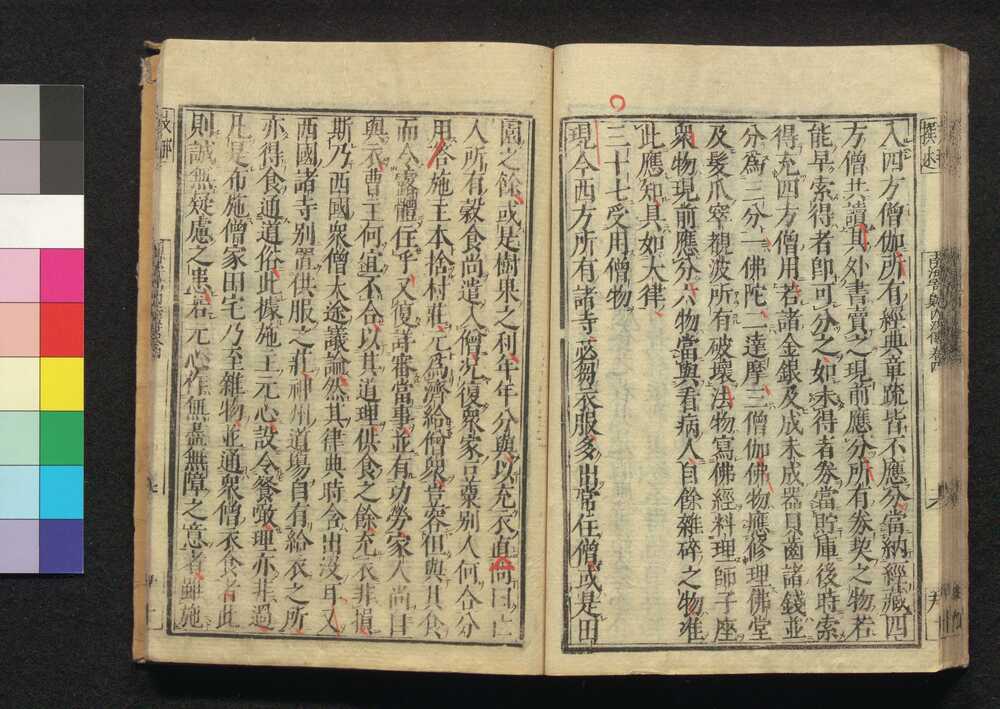 撰述
南海寄歸內法傳卷四
入四方僧伽所有經典章疏皆不應分當納經藏四
方僧共讀其外書賣之現前應分所有券契之物若
能早索得者即可分之如未得者券當貯庫後時索
得充四方僧用若諸金銀及成未成器貝齒諸錢並
分為三分一佛陀二達摩三僧伽佛物應修理佛堂
及髮爪窣覩波所有破壞法物寫佛經料理師子座
衆物現前應分六物當與看病人自餘雜碎之物准
此應知具如大律
三十七受用僧物
現今西方所有諸寺苾芻衣服多出常住僧或是田
園之餘或是樹果之利年年分與以充衣直問曰亡
人所有穀食尚遣入僧況復衆家豆粟別人何合分
用答施主本捨村莊元為濟給僧衆豈容但與其食
而令露體住乎又復詳審當事並有功勞家人尚自
與衣曹主何宜不合以其道理供食之餘充衣非損
斯乃西國衆僧大途議論然其律典時含出沒耳又
西國諸寺別置供服之莊神州道場自有給衣之所
亦得食通道俗此據施主元心設令餐噉理亦非過
凡是布施僧家田宅乃至雜物並通衆僧衣食者此
則誠無疑慮之患若元心作無盡無障之意者雖施